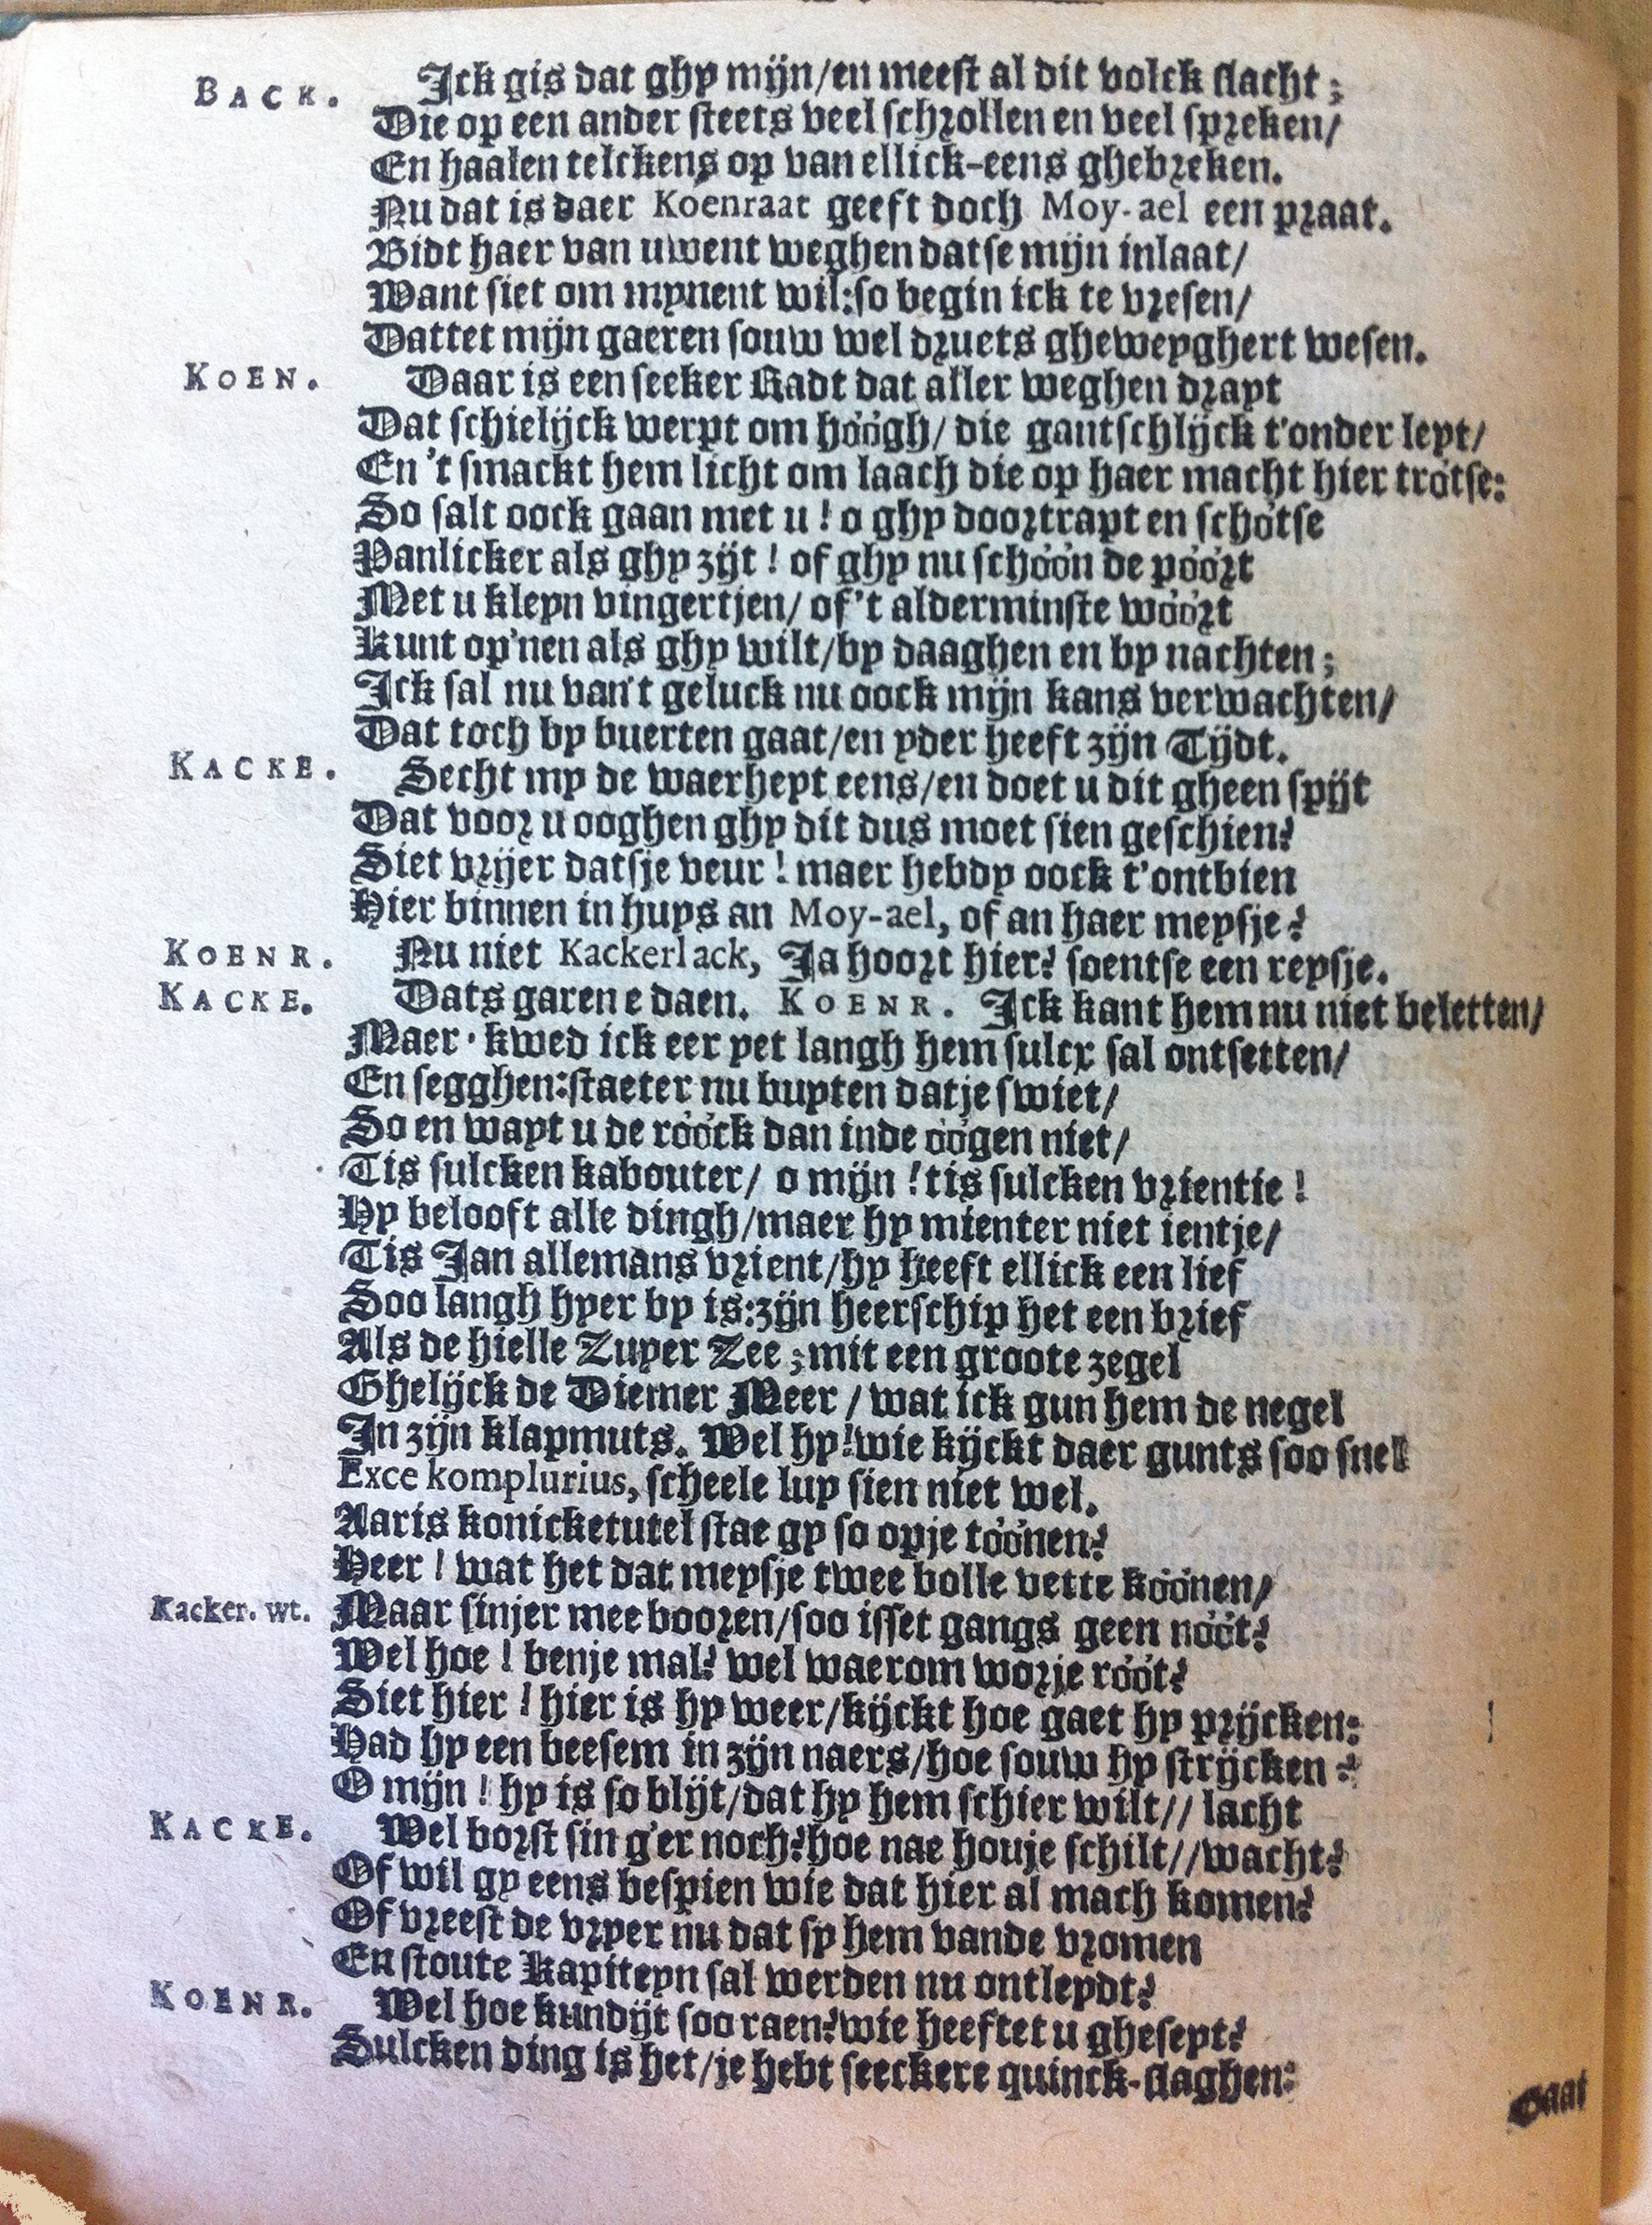 BACK. Ick gis dat ghy mijn/en meest al dit volck slacht;
Die op een ander steets veel schrollen en veel spreken/
En haalen telckens op van ellick-eens ghebreken.
Nu dat is daer Koenraat geeft doch Moy-ael een praat.
Bidt haer van uwent weghen datse mijn inlaat/
Want siet om mynent wil:so begin ick te vresen/
Dattet mijn gaeren souw wel druets gheweyghert wesen.
KOEN. Daar is een seeker Radt dat aller weghen drayt
Dat schielijck werpt om hóógh/ die gantschlijck t'onder leyt/
En 't smackt hem licht om laach die op haer macht hier trotse:
So salt oock gaan met u! o ghy doortrapt en schotse
Panlicker als ghy zijt! of ghy nu schóón de póórt
Met u kleyn vingertjen/ of't alderminste wóórt
Kunt op'nen als ghy wilt/by daaghen en by nachten;
Ick sal nu van't geluck nu oock mijn kans verwachten/
Dat toch by buerten gaat/en yder heeft zijn Tijdt.
KACKE. Secht my de waerheyt eens/en doet u dit gheen spijt
Dat voor u ooghen ghy dit dus moet sien geschien?
Siet vrijer datsje veur! maer hebdy oock t'ontbien
Hier binnen in huys an Moy-ael, of an haer meysje?
KOENR. Nu niet Kackerlack, Ja hoort hier? soentse een reysje.
KACKE. Dats garen e daen. KOENR. Ick kant hem nu niet beletten/
Maer kwed ick eer yet langh hem sulcx sal ontsetten/
En segghen:staeter nu buyten datje swiet/
So en wayt u de róóck dan inde óógen niet/
Tis sulcken kabouter/ o mijn! tis sulcken vrientie!
Hy belooft alle dingh/maer hy mienter niet ientje/
Tis Jan allemans vrient/hy heeft ellick een lief
Soo langh hyer by is:zijn heerschip het een brief
Als de hielle Zuyer Zee; mit een groote zegel
Ghelijck de Diemer Meer / wat ick gun hem de negel
In zijn klapmuts. Wel hy! wie kijckt daer gunts soo snel
Exce komplurius, scheele luy sien niet wel.
Aaris konicketutel stae gy so opje tóónen?
Heer! wat het dat meysje twee bolle vette kóónen/
Kacker. wt. Maar sinjer mee booren/soo isset gangs geen nóót?
Wel hoe! benje mal? wel waerom worje róót?
Siet hier! hier is hy weer/kijckt hoe gaet hy prijcken:
Had hy een beesem in zijn naers/hoe souw hy strijcken?
O mijn! hy is so blijt/dat hy hem schier wilt// lacht
KACKE. Wel borst sin g'er noch?hoe nae houje schilt//wacht?
Of wil gy eens bespien wie dat hier al mach komen?
Of vreest de vryer nu dat sy hem vande vromen
En stoute Kapiteyn sal werden nu ontleydt?
KOENR. Wel hoe kundijt soo raen?wie heeftet u gheseyt?
Sulcken ding is het/je hebt seeckere quinck-slaghen:
Gaat